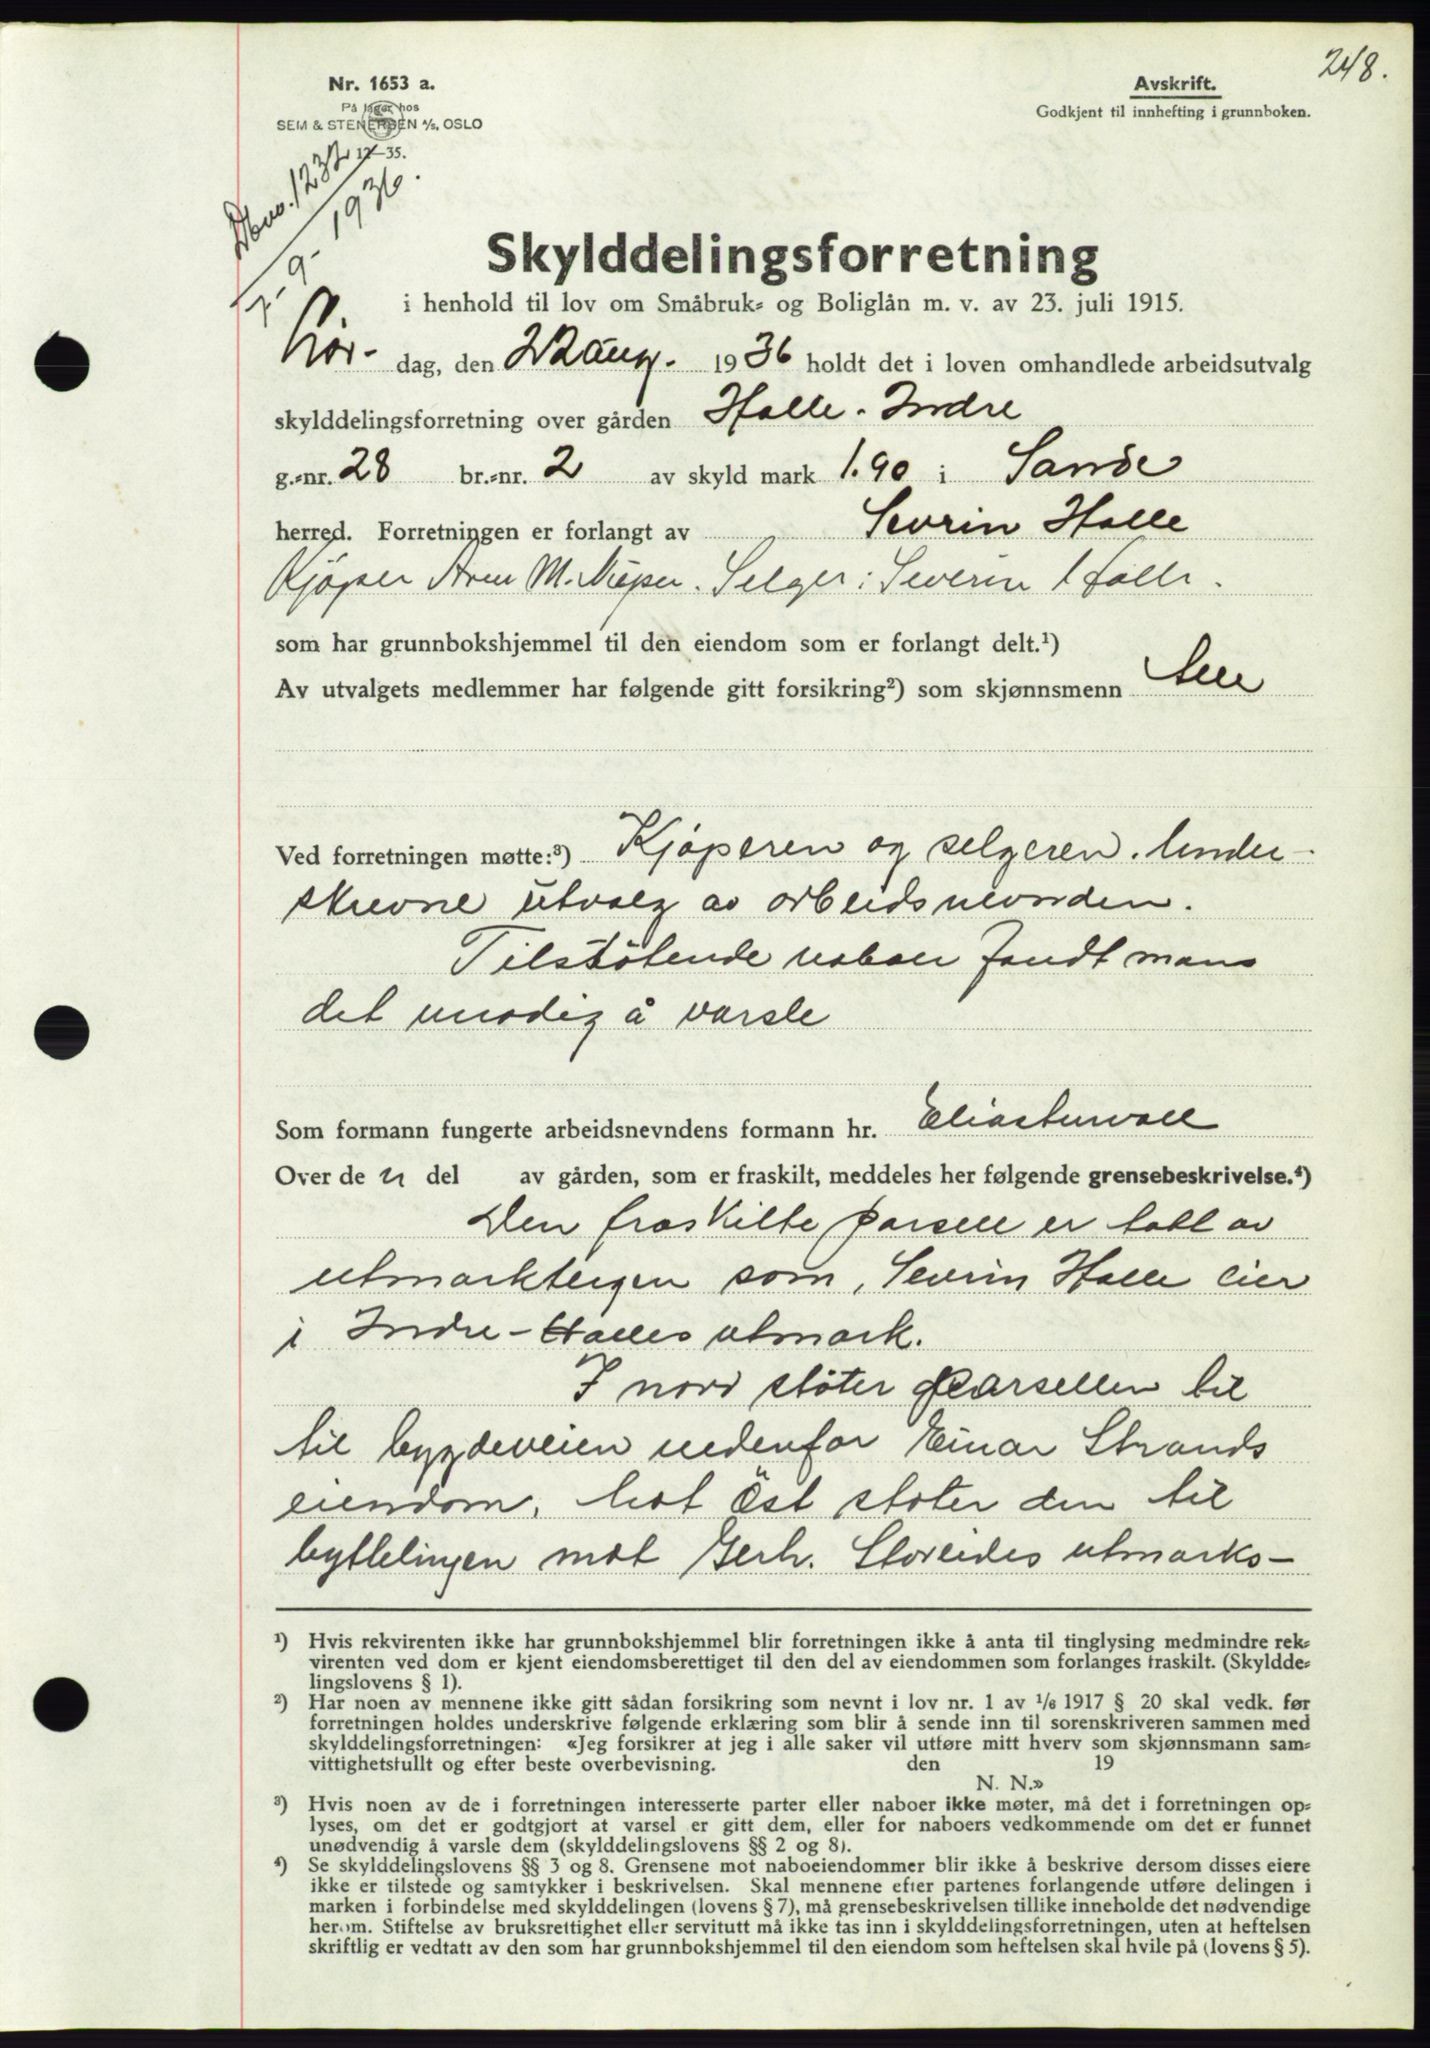 248.
Nr. 1653 a.
På lager hos
SEM & STENERSEN A/S, OSLO
12—35.
Avskrift.
Godkjent til innhefting i grunnboken.
Dbno. 1232
7-9-1936.
Skylddelingsforretning
i henhold til lov om Småbruk- og Boliglån m. v. av 23. juli 1915.
Lör- dag, den 22 aug. 1936 holdt det i loven omhandlede arbeidsutvalg
skylddelingsforretning over gården Halle. Indre
g.-nr. 28 br.-nr. 2 av skyld mark 1.90 i Sande
herred. Forretningen er forlangt av Sevrin Halle
Kjøper M. Selger: Severin Halle.
som har grunnbokshjemmel til den eiendom som er forlangt delt.¹)
Av utvalgets medlemmer har følgende gitt forsikring²) som skjønnsmenn Alle
Ved forretningen møtte:³) Kjøperen og selgeren. Under-
skrevne utvalg av arbeidsnevnden.
Tilstötende naboer fandt man
det unødig å varsle
Som formann fungerte arbeidsnevndens formann hr.
Over de n del av gården, som er fraskilt, meddeles her følgende grensebeskrivelse.⁴)
Den fraskilte parsell er tatt av
utmarkteigen som, Sevrin Halle eier
i Indre-Halles utmark.
I nord støter parsellen til
til bygdeveien nedenfor Einar Strands
eiendom. Mot Öst støter den til
byttelinjen mot Gerh. Storeides utmarks-
¹) Hvis rekvirenten ikke har grunnbokshjemmel blir forretningen ikke å anta til tinglysing medmindre rek-
virenten ved dom er kjent eiendomsberettiget til den del av eiendommen som forlanges fraskilt. (Skyldde-
lingslovens § 1).
²) Har noen av mennene ikke gitt sådan forsikring som nevnt i lov nr. 1 av ¹/₆ 1917 § 20 skal vedk. før
forretningen holdes underskrive følgende erklæring som blir å sende inn til sorenskriveren sammen med
skylddelingsforretningen: «Jeg forsikrer at jeg i alle saker vil utføre mitt hverv som skjønnsmann sam-
vittighetsfullt og efter beste overbevisning. den 19
N. N.»
³) Hvis noen av de i forretningen interesserte parter eller naboer ikke møter, må det i forretningen op-
lyses, om det er godtgjort at varsel er gitt dem, eller for naboers vedkommende om det er funnet
unødvendig å varsle dem (skylddelingslovens §§ 2 og 8).
⁴) Se skylddelingslovens §§ 3 og 8. Grensene mot naboeiendommer blir ikke å beskrive dersom disses eiere
ikke er tilstede og samtykker i beskrivelsen. Skal mennene efter partenes forlangende utføre delingen i
marken i forbindelse med skylddelingen (lovens § 7), må grensebeskrivelsen tillike inneholde det nødvendige
herom. Stiftelse av bruksrettighet eller servitutt må ikke tas inn i skylddelingsforretningen, uten at heftelsen
skriftlig er vedtatt av den som har grunnbokshjemmel til den eiendom som heftelsen skal hvile på (lovens § 5).